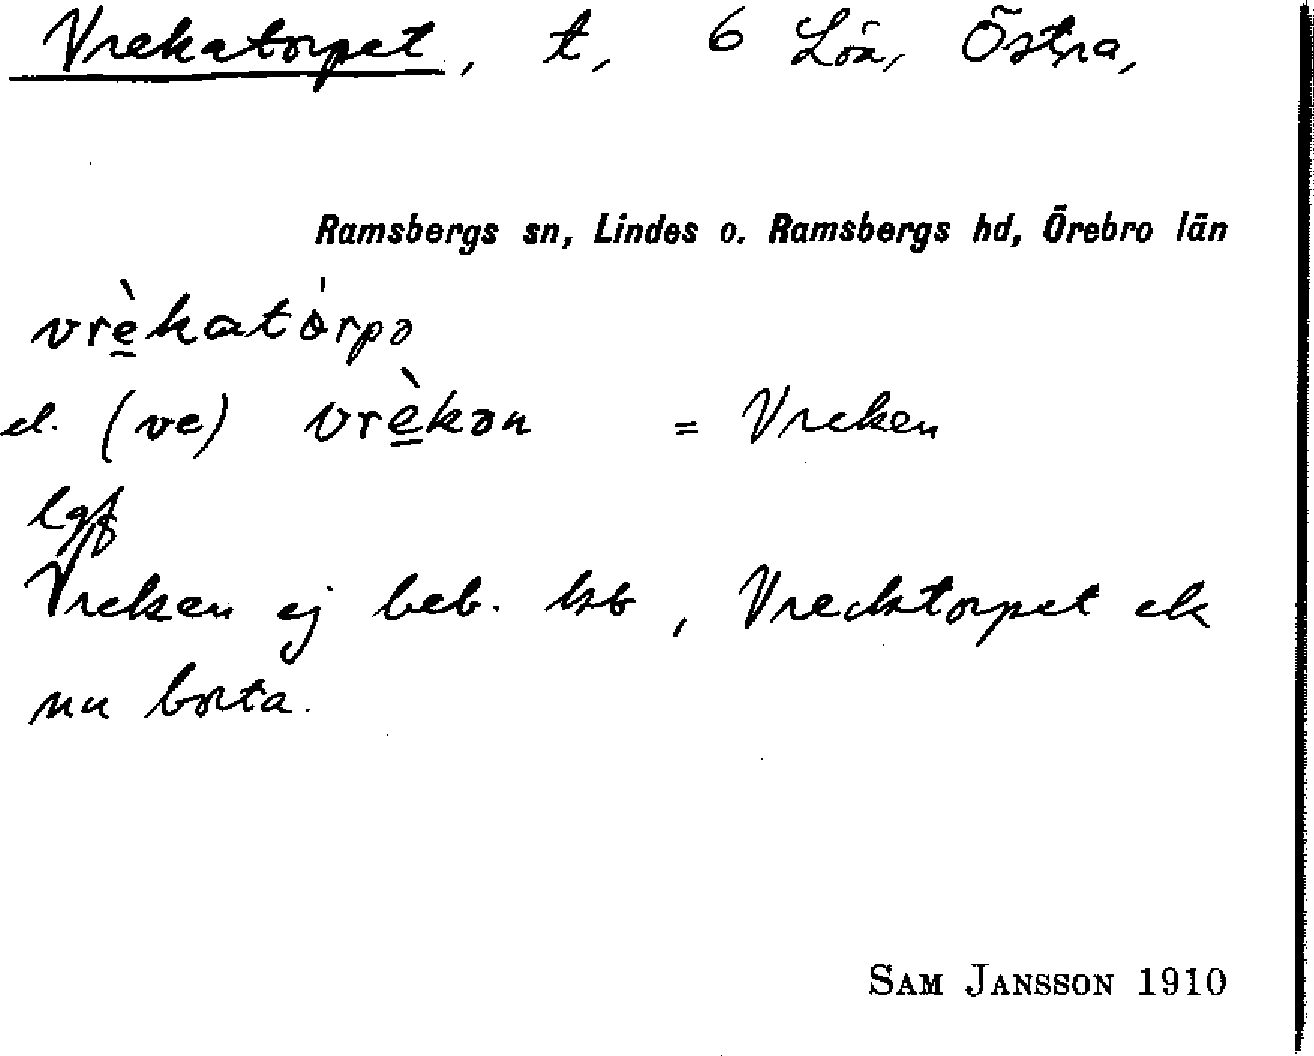 Vrekatorpet, t, 6 Löa, Östra,
Ramsbergs sn, Lindes o. Ramsbergs hd, Örebro län
vrèkatórpə
el. (ve) vrèkən = Vreken
lgf
Vreken ej beb. , Vrecktorpet
nu borta.
SAM JANSSON 1910